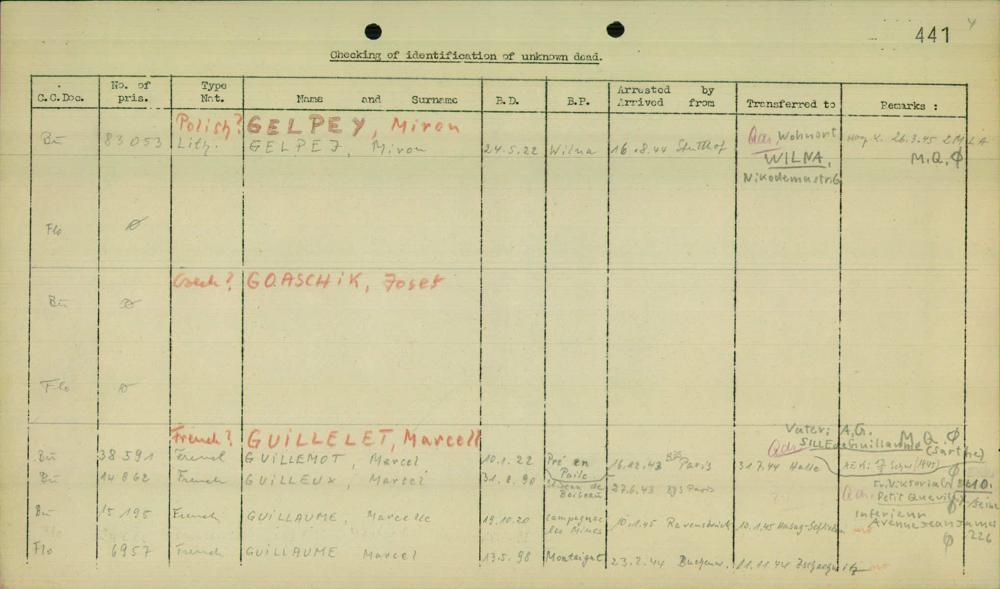 441
Checking of identification of unknown dead.
C.C.Doc. No. of pris. Type Nat. Name and Surname B.D. B.P. Arrested by Arrived from Transferred to Remarks :
Polish? GELPEY, Miron
Bu 83053 GELPEJ, Miron 24.5.22 Wilna 16.8.44 Stutthof Wohnort 26.3.45
WILNA, M.Q. Ø
Flo
Czech? GOASCHIK, Josef
Bu
Flo
French? GUILLELET, Marcell
Vater: A.G. M.Q. Ø
SILLE de Guillaume (Sarthe)
Bu 38591 French GUILLEMOT, Marcel 10.1.22 Pré en Paile 16.12.43 Paris 31.7.44 Halle
Bu 14862 French GUILLEUX, Marcel 31.8.90 St. Jean de Boiseau 27.6.43 Paris
Petit Quevilly
Bu 15195 French GUILLAUME, Marcelle 19.10.20 Campagnac les Mines 10.1.45 Ravensbrück 10.1.45 Hasag-
Inferieur
Avenue Jean Jaures
226
Flo 6957 French GUILLAUME Marcel 13.5.98 Montaigut 23.2.44 Buchenw. 11.11.44
Ø